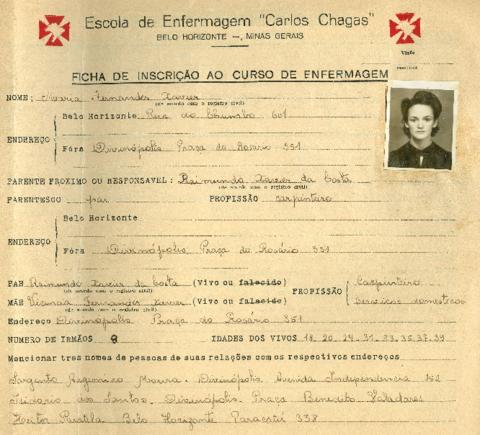 Escola de Enfermagem "Carlos Chagas"
BELO HORIZONTE —, MINAS GERAIS
Visto
FICHA DE INSCRIÇÃO AO CURSO DE ENFERMAGEM
NOME: Maria Fernandes Xavier
(de acordo com o registro civil)
Belo Horizonte Rua do Chumbo 601
ENDEREÇO
Fóra Divinópolis Praça do Rosário 351
PARENTE PROXIMO OU RESPONSAVEL: Raimundo Xavier da Costa
(de acordo com o registro civil)
PARENTESCO pai PROFISSÃO carpinteiro
Belo Horizonte
ENDEREÇO
Fóra Divinópolis Praça do Rosário 351
PAE Raimundo Xavier da Costa (Vivo ou falecido) Carpinteiro
(de acordo com o registro civil) PROFISSÃO
MÃE Fernandes Xavier (Vivo ou falecido) Serviços domesticos
(de acordo com o registro civil)
Endereço Divinópolis Praça do Rosário 351
NUMERO DE IRMÃOS 8 IDADES DOS VIVOS 18, 20, 24, 31, 33, 35, 37, 39
Mencionar tres nomes de pessoas de suas relações com os respectivos endereços
Sargento Moura - Divinópolis Avenida Independencia 162
dos Santos - Divinópolis - Praça Benedito Valadares
Heitor Belo Horizonte 338